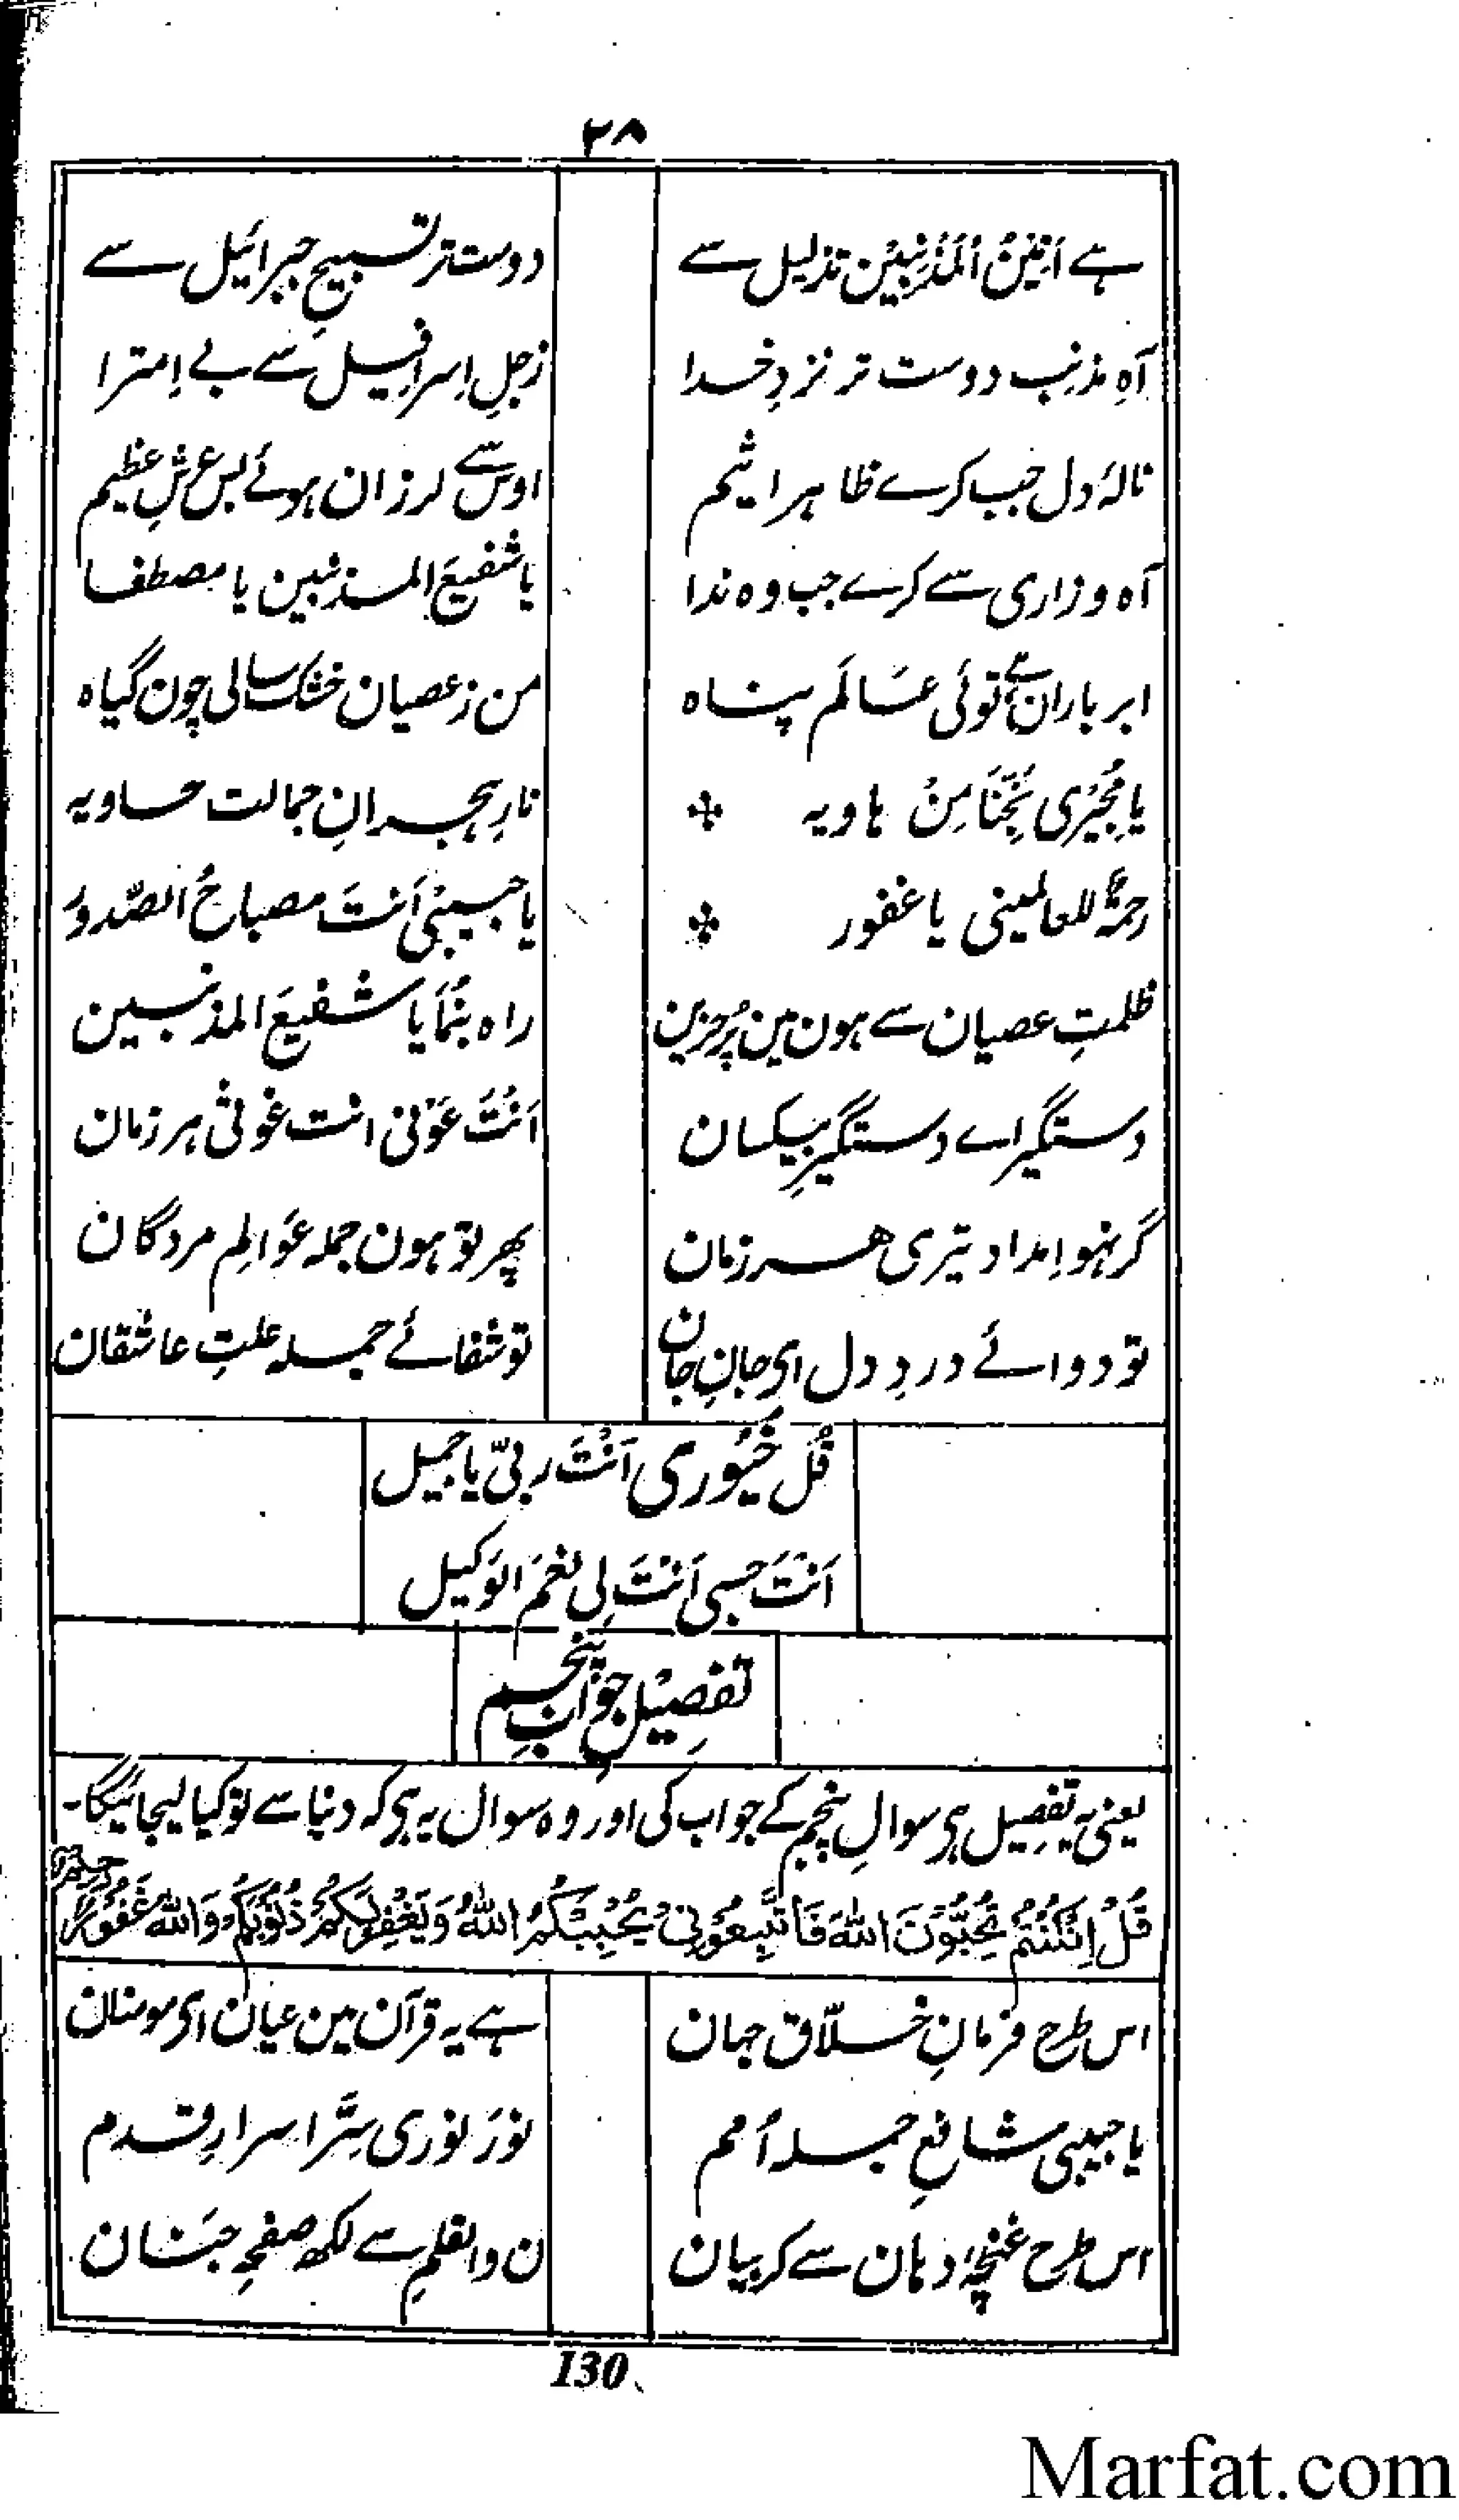 ۲۸
ہے اَنِیْنُ الْمُذْنِبِیْن تذلیل سے دوست تر تسبیحِ جبرائیل سے
آہِ مذنب دوست تر نزدِ خدا زجلِ اسرافیل سے بے اِمترا
نالۂ دل جب کرے ظاہر اثیم اوس سے لرزان ہوئے بس عرشِ عظیم
آہ وزاری سے کرے جب وہ ندا یا شفیعَ المذنبین یا مصطفٰے
ابر باران ہے توئی عَالَم پناہ من ز عصیان خشک سالی چون گیاہ
یا مُجِیْرِی نَجِّنَا مِنْ ہاویہ نارِ ہجرانِ جمالت حاویہ
رحمۃٌ للعالمینی یا غفور یا حبیبی اَنتَ مصباحُ الصُّدور
ظلمتِ عصیان سے ہون مین پُر حزین راہ بنُما یا شفیعَ المذنبین
دستگیر اے دستگیرِ بیکسان اَنْتَ عَوْنی انت غوثی ہر زمان
گر نہو اِمداد تیری ہر زمان پھر تو ہون جملہ عَوالِم مردگان
تو دوائے دردِ دل ای جانِ جان تو شفائے جملہ علتِ عاشقان
قُل خَیُوری اَنْتَ ربّی یا جمیل
اَنْتَ حسبی اَنْتَ لِی نعمَ الوَکیل
تفصِیْل جوابِ پنجم
یعنی یہ تفصِیل ہی سوالِ پنجم کے جواب کی اور وہ سوال یہ ہی کہ دنیا سے تو کیا لیجائیگا۔
قُلْ اِنْ کُنْتُمْ تُحِبُّوْنَ اللّٰہَ فَاتَّبِعُوْنِیْ یُحْبِبْکُمُ اللّٰہُ وَیَغْفِرْ لَکُمْ ذُنُوْبَکُمْ وَاللّٰہُ غَفُوْرٌ رَّحِیْمٌ
اس طرح فرمانِ خلّاق جہان ہے یہ قرآن مین عیان ای مومنان
یا حبیبی شافعِ جملہ اُمم نورَ نوری سِرَّ اسرارِ قدم
اس طرح غنچۂ دہان سے کر بیان ن والقلمِ سے لکھ صفحۂ جَنان
130
Marfat.com